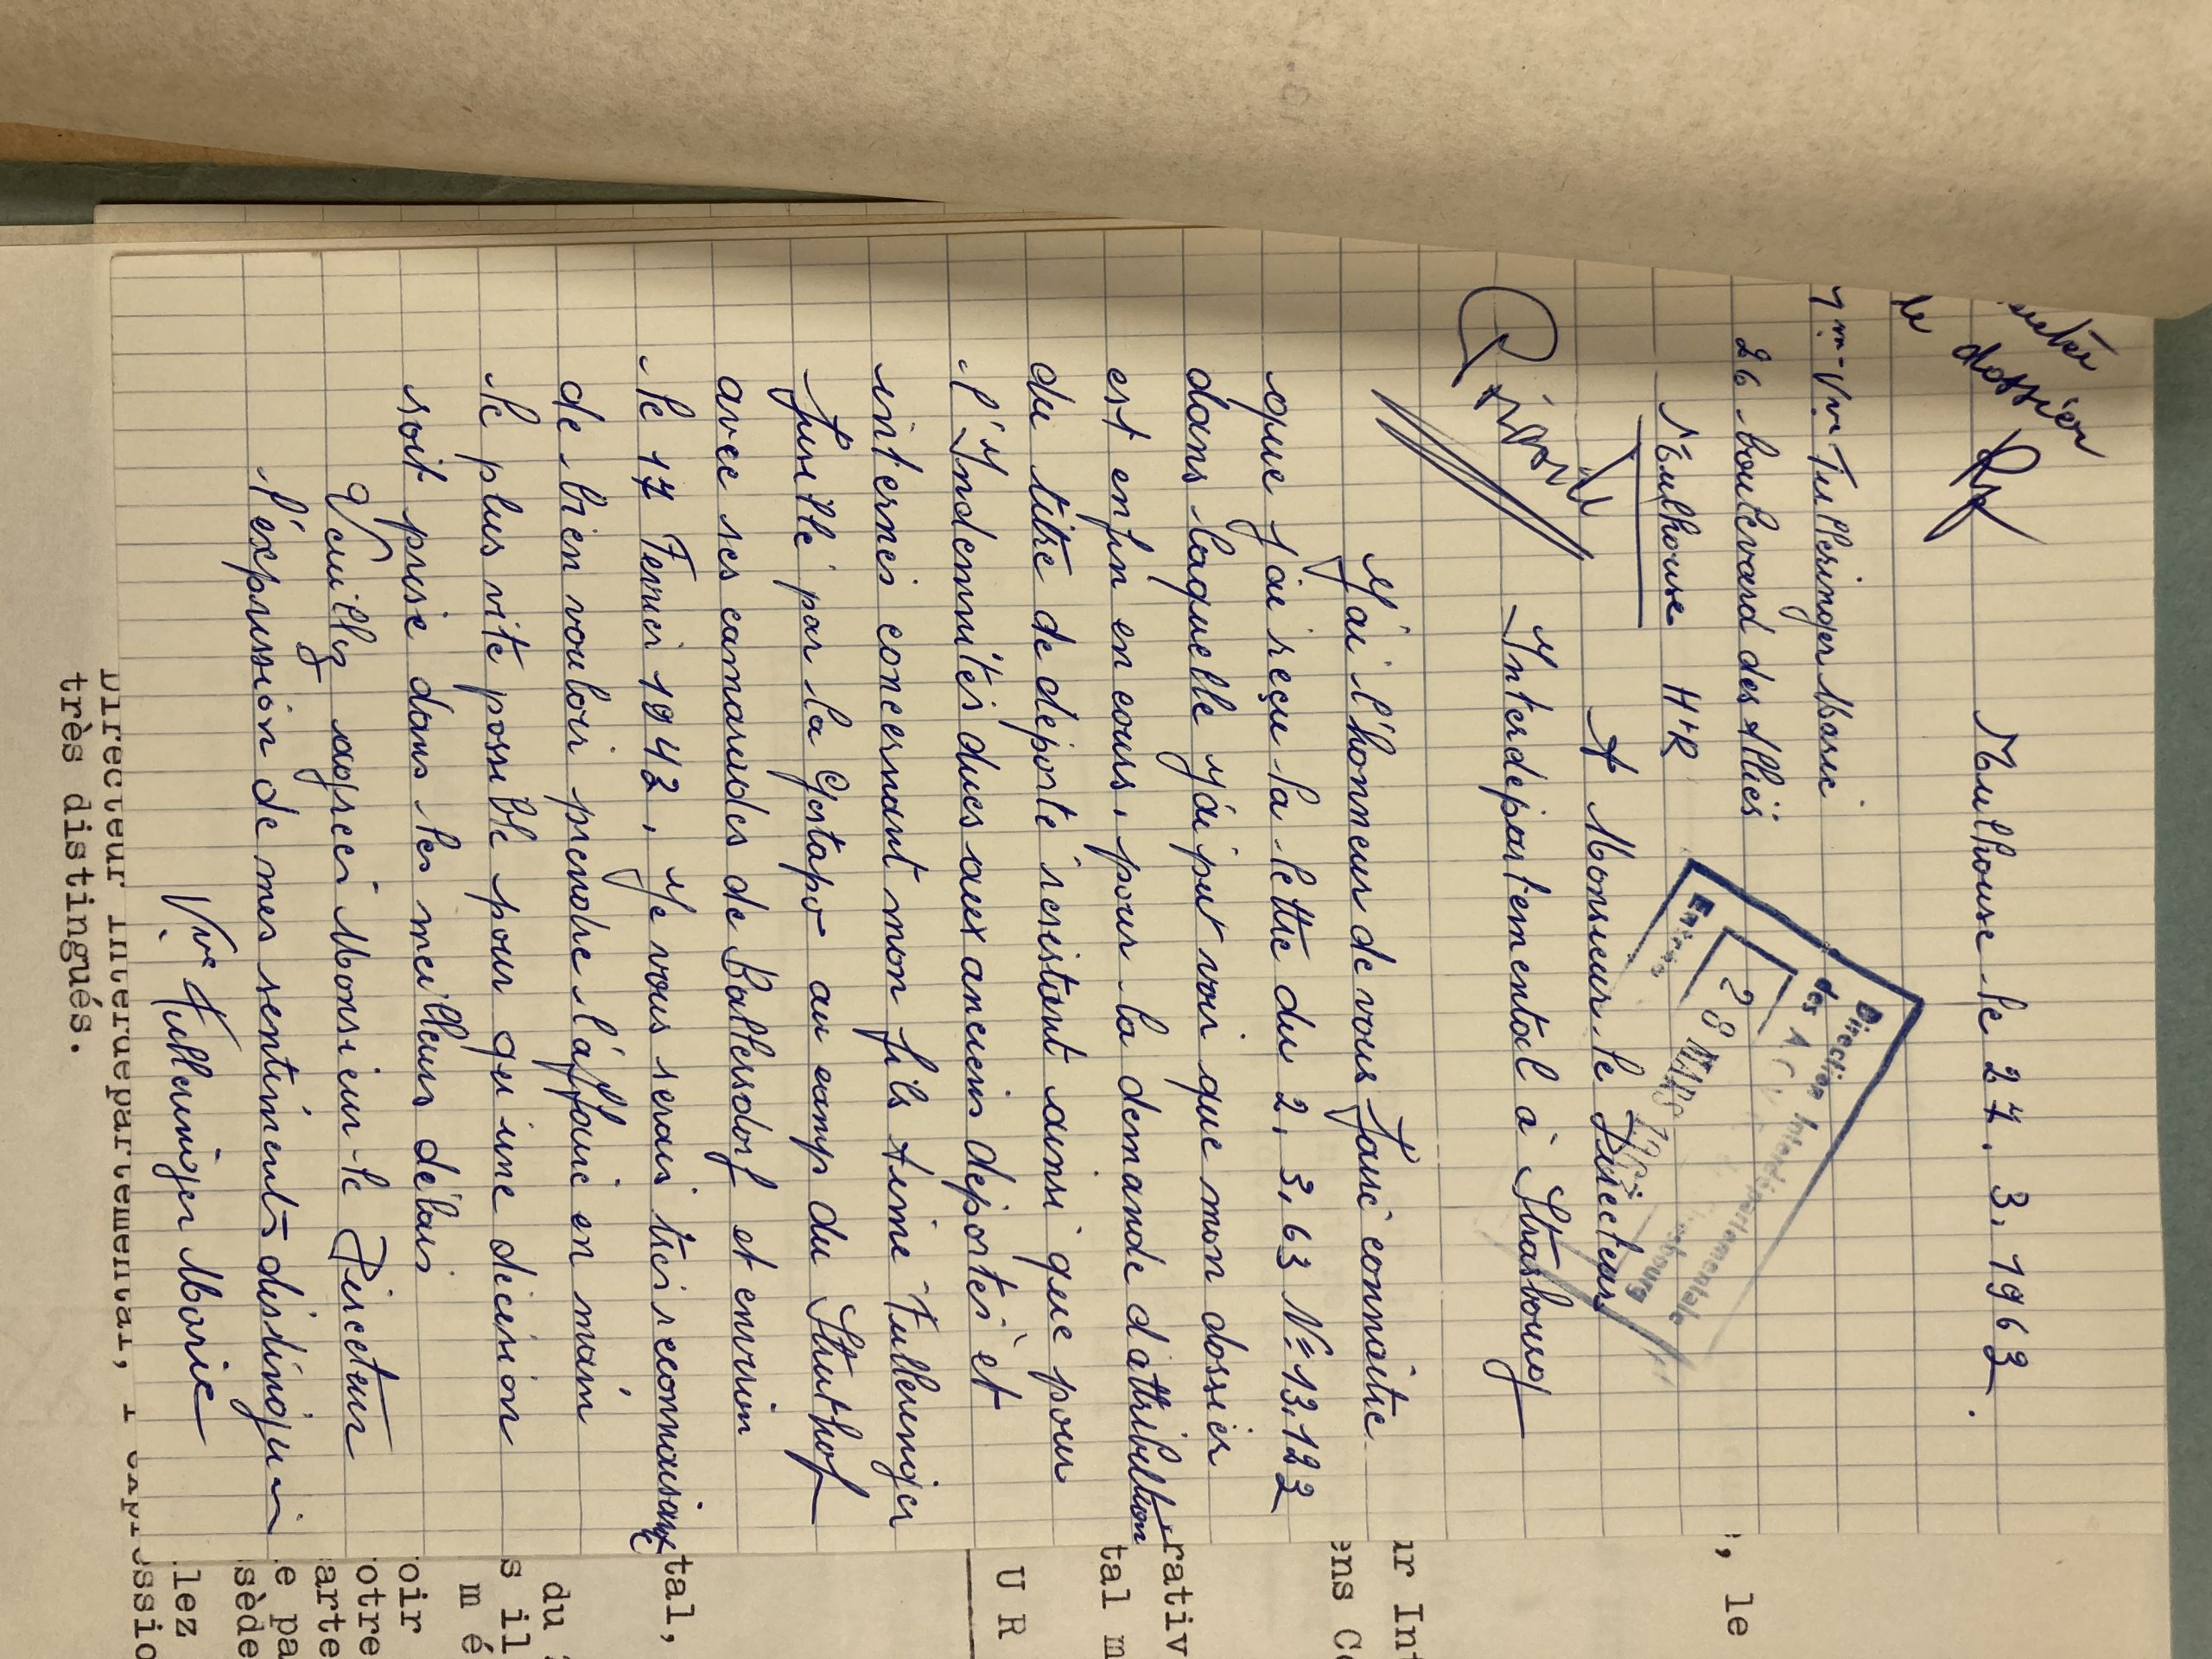 Mulhouse le 27. 3. 1963.
le dossier
Vve Fulleringer Marie
26 boulevard des Alliés
Mulhouse HR
Direction Interdépartementale
des A C
Strasbourg
28 MARS 1963
A Monsieur le Directeur
Interdépartemental à Strasbourg
J'ai l'honneur de vous faire connaitre
que j'ai reçu la lettre du 2, 3, 63 N= 13.123
dans laquelle j'ai put voir que mon dossier
est enfin en cours, pour la demande d'attribution
du titre de déporté résistent ainsi que pour
l'Indemnités dues aux anciens déportés et
internés concernant mon fils Aimé Fulleringer
fusillé par la Gestapo au camp du Struthof
avec ses camarades de Ballersdorf et environ
le 17 Fevrier 1943, Je vous serais très reconnaisante
de bien vouloir prendre l'affaire en main
le plus vite possible pour qu'une décision
soit prise dans les meilleurs délais
Veuillez agréer Monsieur le Directeur
l'éxpression de mes sentiments distingués
Vve Fulleringer Marie
, le
ur Int
ens Co
rativ
tal m
U R
tal,
du
s il
m é
oir
otre
arte
e pa
sède
lez
ssio
Directeur Interdépartemental, l'
très distingués.